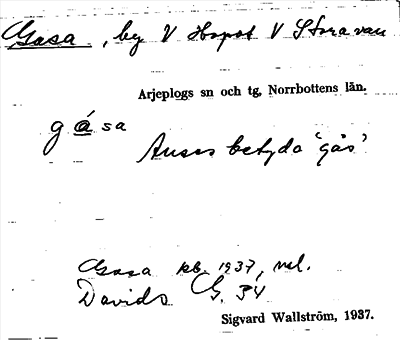 Gasa, by V Hopst V Storavan
Arjeplogs sn och tg, Norrbottens län.
gása
Anses betyda 'gås'
Gasa kb. 1937, nel.
Davids G. 34
Sigvard Wallström, 1937.